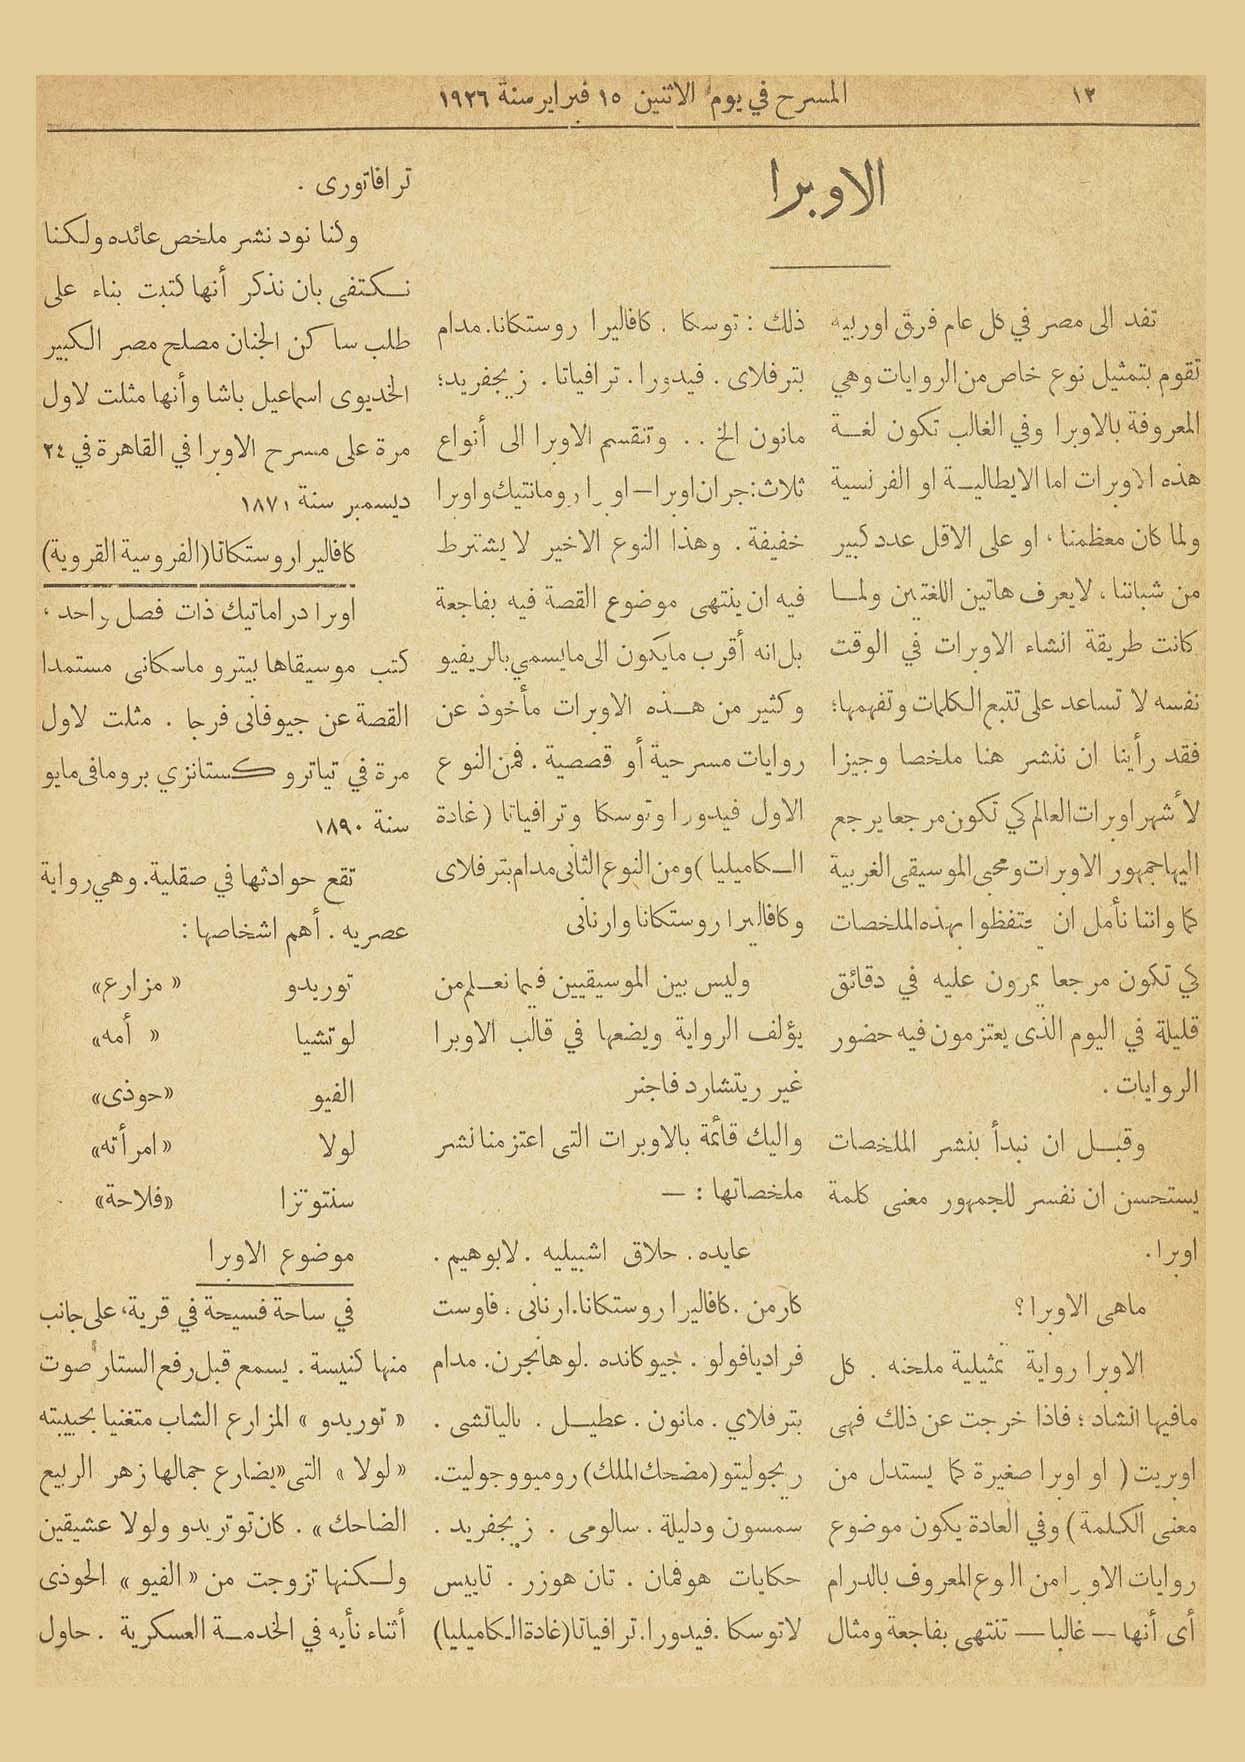 ١٢
المسرح في يوم الاثنين ١٥ فبراير سنة ١٩٢٦
الاوبرا
تفد الى مصر في كل عام فرق اوربيه
تقوم بتمثيل نوع خاص من الروايات وهي
المعروفة بالاوبرا وفي الغالب تكون لغـة
هذه الاوبرات اما الايطاليـة او الفرنسية
ولما كان معظمنا ، او على الاقل عدد كبير
من شباننا ، لايعرف هاتين اللغتين ولمـا
كانت طريقة انشاء الاوبرات في الوقت
نفسه لا تساعد على تتبع الكلمات وتفهمها؛
فقد رأينا ان ننشر هنا ملخصا وجيزا
لأشهر اوبرات العالم كي تكون مرجعا يرجع
اليها جمهور الاوبرات ومحبى الموسيقى الغربية
كما واننا نأمل ان يحتفظوا بهذه الملخصات
كي تكون مرجعا يمرون عليه في دقائق
قليلة في اليوم الذى يعتزمون فيه حضور
الروايات .
وقبـل ان نبدأ بنشر الملخصات
يستحسن ان نفسر للجمهور معنى كلمة
اوبرا.
ماهى الاوبرا ؟
الاوبرا رواية تمثيلية ملحنه . كل
مافيها انشاد ؛ فاذا خرجت عن ذلك فهى
اوبريت ( او اوبرا صغيرة كما يستدل من
معنى الكلمة ) وفي العادة يكون موضوع
روايات الاوبرا من النوع المعروف بالدرام
أى أنها — غالبا — تنتهى بفاجعة ومثال
ذلك : توسكا . كافاليرا روستكانا. مدام
بترفلاى . فيدورا . ترافياتا . زيجفريد؛
مانون الخ . . وتنقسم الاوبرا الى أنواع
ثلاث : جران اوبرا — اوبرا رومانتيك واوبرا
خفيفة . وهذا النوع الاخير لا يشترط
فيه ان ينتهى موضوع القصة فيه بفاجعة
بل انه أقرب مايكون الى مايسمي بالريفيو
وكثير من هـذه الاوبرات مأخوذ عن
روايات مسرحية أو قصصية . فمن النوع
الاول فيدورا وتوسكا وترافياتا ( غادة
الـكاميليا ) ومن النوع الثانى مدام بترفلاى
وكافاليرا روستكانا وارنانى
وليس بين الموسيقيين فيما نعـلم من
يؤلف الرواية ويضعها في قالب الاوبرا
غير ريتشارد فاجنر
واليك قائمة بالاوبرات التى اعتزمنا نشر
ملخصاتها : —
عايده . حلاق اشبيليه . لابوهيم .
كارمن . كافاليرا روستكانا. ارنانى . فاوست
فراديافولو . جيوكانده . لوهانجرن. مدام
بترفلاي . مانون . عطيـل . بالياتشى .
ريجوليتو (مضحك الملك) روميو وجوليت.
سمسون ودليلة . سالومى . زيجفريد .
حكايات هوفمان . تان هوزر . تاييس
لاتوسكا . فيدورا. ترافياتا (غادة الكاميليا)
ترافاتورى .
وكنا نود نشر ملخص عائده ولكنا
نـكتفى بان نذكر أنها كتبت بناء على
طلب ساكن الجنان مصلح مصر الكبير
الخديوى اسماعيل باشا وأنها مثلت لاول
مرة على مسرح الاوبرا في القاهرة في ٢٤
ديسمبر سنة ١٨٧١
كافاليرا روستكانا (الفروسية القروية)
اوبرا دراماتيك ذات فصل واحد ،
كتب موسيقاها بيترو ماسكانى مستمدا
القصة عن جيوفانى فرجا . مثلت لاول
مرة في تياترو كستانزي بروما فى مايو
سنة ١٨٩٠
تقع حوادثها في صقلية . وهي رواية
عصريه . أهم اشخاصها :
توريدو « مزارع»
لوتشيا « أمه»
الفيو «حوذى»
لولا «امرأته»
سنتوتزا «فلاحة»
موضوع الاوبرا
في ساحة فسيحة في قرية، على جانب
منها كنيسة . يسمع قبل رفع الستار صوت
« توريدو » المزارع الشاب متغنيا بحبيبته
«لولا » التى «يضارع جمالها زهر الربيع
الضاحك» . كان توتريدو ولولا عشيقين
ولـكنها تزوجت من « الفيو » الحوذى
أثناء نأيه في الخدمـة العسكرية . حاول